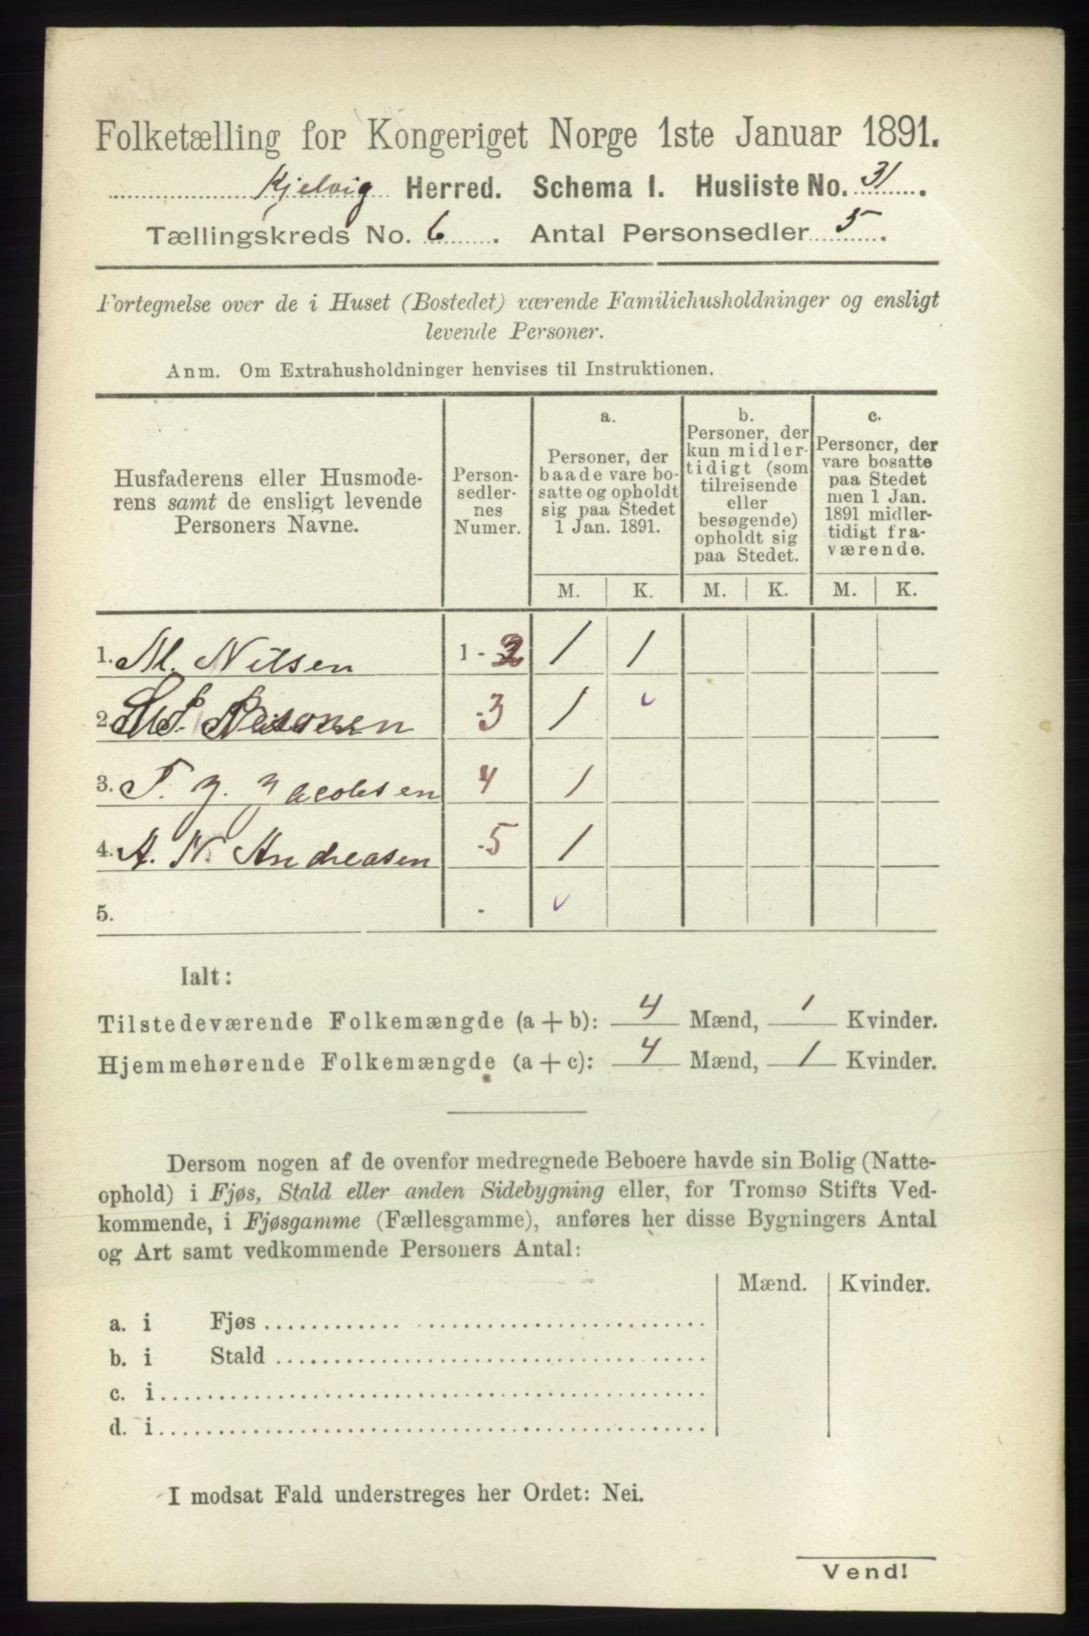 Folketælling for Kongeriget Norge 1ste Januar 1891.
Kjelvig Herred. Schema I. Husliste No. 31.
Tællingskreds No. 6. Antal Personsedler 5.
Fortegnelse over de i Huset (Bostedet) værende Familiehusholdninger og ensligt
levende Personer.
Anm. Om Extrahusholdninger henvises til Instruktionen.
Husfaderens eller Husmode-
rens samt de ensligt levende
Personers Navne.
Person-
sedler-
nes
Numer.
a.
Personer, der
baade vare bo-
satte og opholdt
sig paa Stedet
1 Jan. 1891.
b.
Personer, der
kun midler-
tidigt (som
tilreisende
eller
besøgende)
opholdt sig
paa Stedet.
c.
Personer, der
vare bosatte
paa Stedet
men 1 Jan.
1891 midler-
tidigt fra-
værende.
M. K. M. K. M. K.
1. M. Nilsen 1 - 2 1 1
2. - 3 1
3. J. Jacobsen 4 1
4. A. N. Andreasen - 5 1
5. -
Ialt:
Tilstedeværende Folkemængde (a + b): 4 Mænd, 1 Kvinder.
Hjemmehørende Folkemængde (a + c): 4 Mænd, 1 Kvinder.
Dersom nogen af de ovenfor medregnede Beboere havde sin Bolig (Natte-
ophold) i Fjøs, Stald eller anden Sidebygning eller, for Tromsø Stifts Ved-
kommende, i Fjøsgamme (Fællesgamme), anføres her disse Bygningers Antal
og Art samt vedkommende Personers Antal:
Mænd. Kvinder.
a. i Fjøs
b. i Stald
c. i
d. i
I modsat Fald understreges her Ordet: Nei.
Vend!